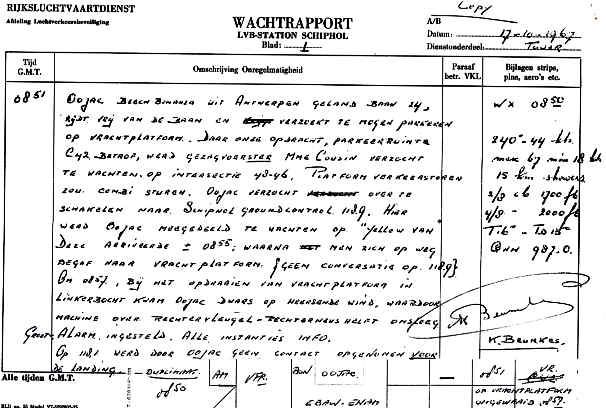 RIJKSLUCHTVAARTDIENST
Afdeling Luchtverkeersbeveiliging
WACHTRAPPORT
LVB-STATION SCHIPHOL
Blad: 1
Copy
A/B
Datum: 17-10-1967
Dienstonderdeel: Tower
Tijd G.M.T.
Omschrijving Onregelmatigheid
Paraaf betr. VKL
Bijlagen strips, pins, aero's etc.
0851
OOJAC BEECH BONANZA UIT ANTWERPEN GELAND BAAN 24,
RIJDT VRIJ VAN DE BAAN EN VERZOEKT TE MOGEN PARKEREN
OP VRACHTPLATFORM. DAAR ONZE OPDRACHT, PARKEERRUIMTE
C42 BETROF, WERD GEZAGVOERSTER MME COUSIN VERZOCHT
TE WACHTEN OP INTERSECTIE 43-46. PLATFORM VERKEERSTOREN
ZOU COMBI STUREN. OOJAC VERZOCHT OVER TE
SCHAKELEN NAAR SCHIPHOL GROUNDCONTROL 118.9. HIER
WERD OOJAC MEDEGEDEELD TE WACHTEN OP "YELLOW VAN"
DEZE ARRIVEERDE ± 0855; WAARNA MEN ZICH OP WEG
BEGAF NAAR VRACHTPLATFORM. {GEEN CONVERSATIE OP 118.9}
OM 0857, BIJ HET OPDRAAIEN VAN VRACHTPLATFORM IN
LINKERBOCHT KWAM OOJAC DWARS OP HEERSENDE WIND, WAARDOOR
MACHINE OVER RECHTERVLEUGEL-RECHTERNEUSHELFT OMSLOEG
GROOT ALARM, INGESTELD. ALLE INSTANTIES INFO.
OP 118.1 WERD DOOR OOJAC GEEN CONTACT OPGENOMEN VOOR
DE LANDING
WX 0850
240°-44 kts
max 67 min 18 kts
15 km showers
2/8 cb 1700 ft
4/8 - 2000 ft
QNH 987.0.
K. BEUNKES.
Alle tijden G.M.T.
0850
AM
VFR.
OOJAC
EBAW-EHAM
0851
OP VRACHTPLATFORM
0857